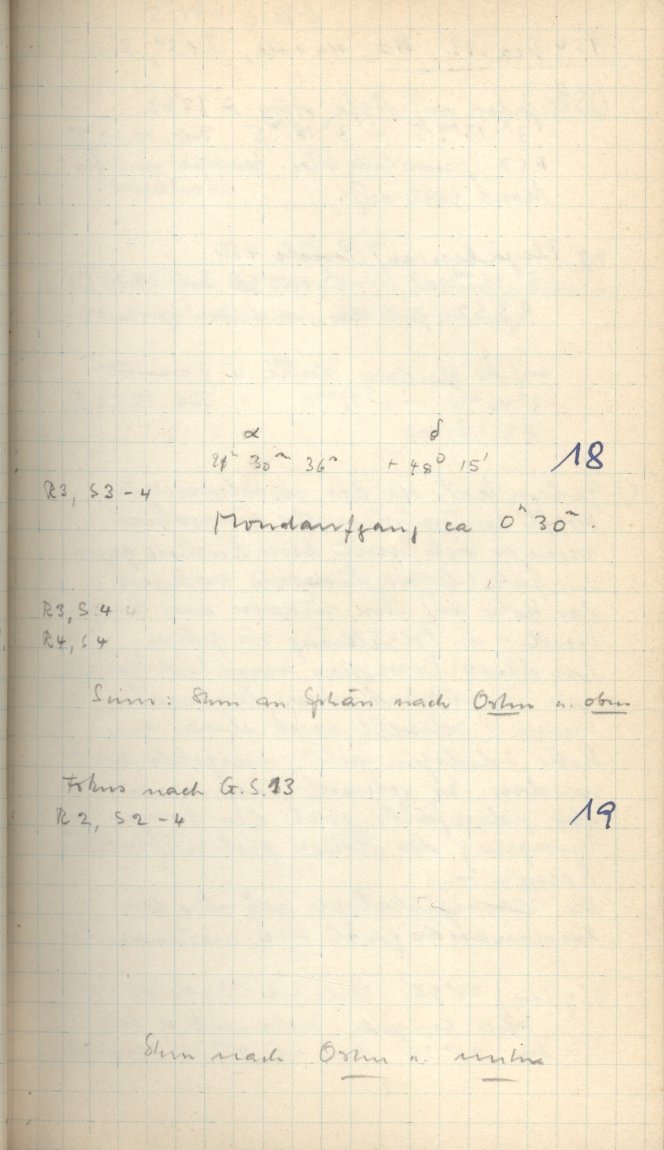 α δ
21ʰ 30ᵐ 36ˢ + 48⁰ 15' 18
R3, S3-4
Mondaufgang ca 0ʰ 30ᵐ.
R3, S4
R4, S4
Sinn: Stern an Sphäre nach Osten u. oben
Fokus nach G.S.13
R2, S2-4 19
Stern nach Osten u. unten